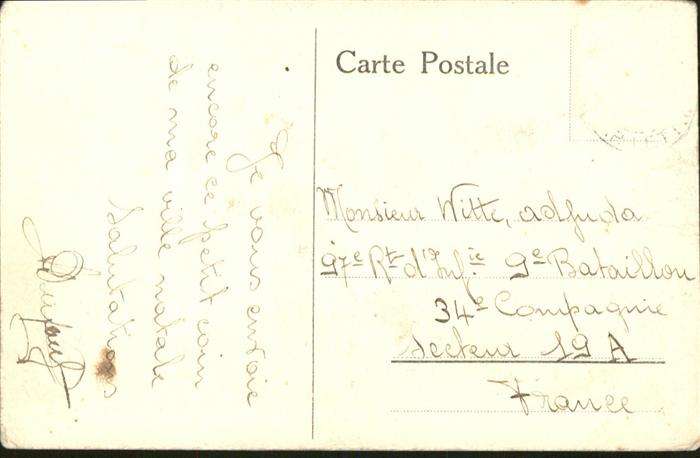 Carte Postale
Je vous envoie
encore ce petit coin
de ma ville natale
Salutations
Monsieur Witte, adjuda
97e Rt d'Infie 9e Bataillon
34e Compagnie
Secteur 19 A
France